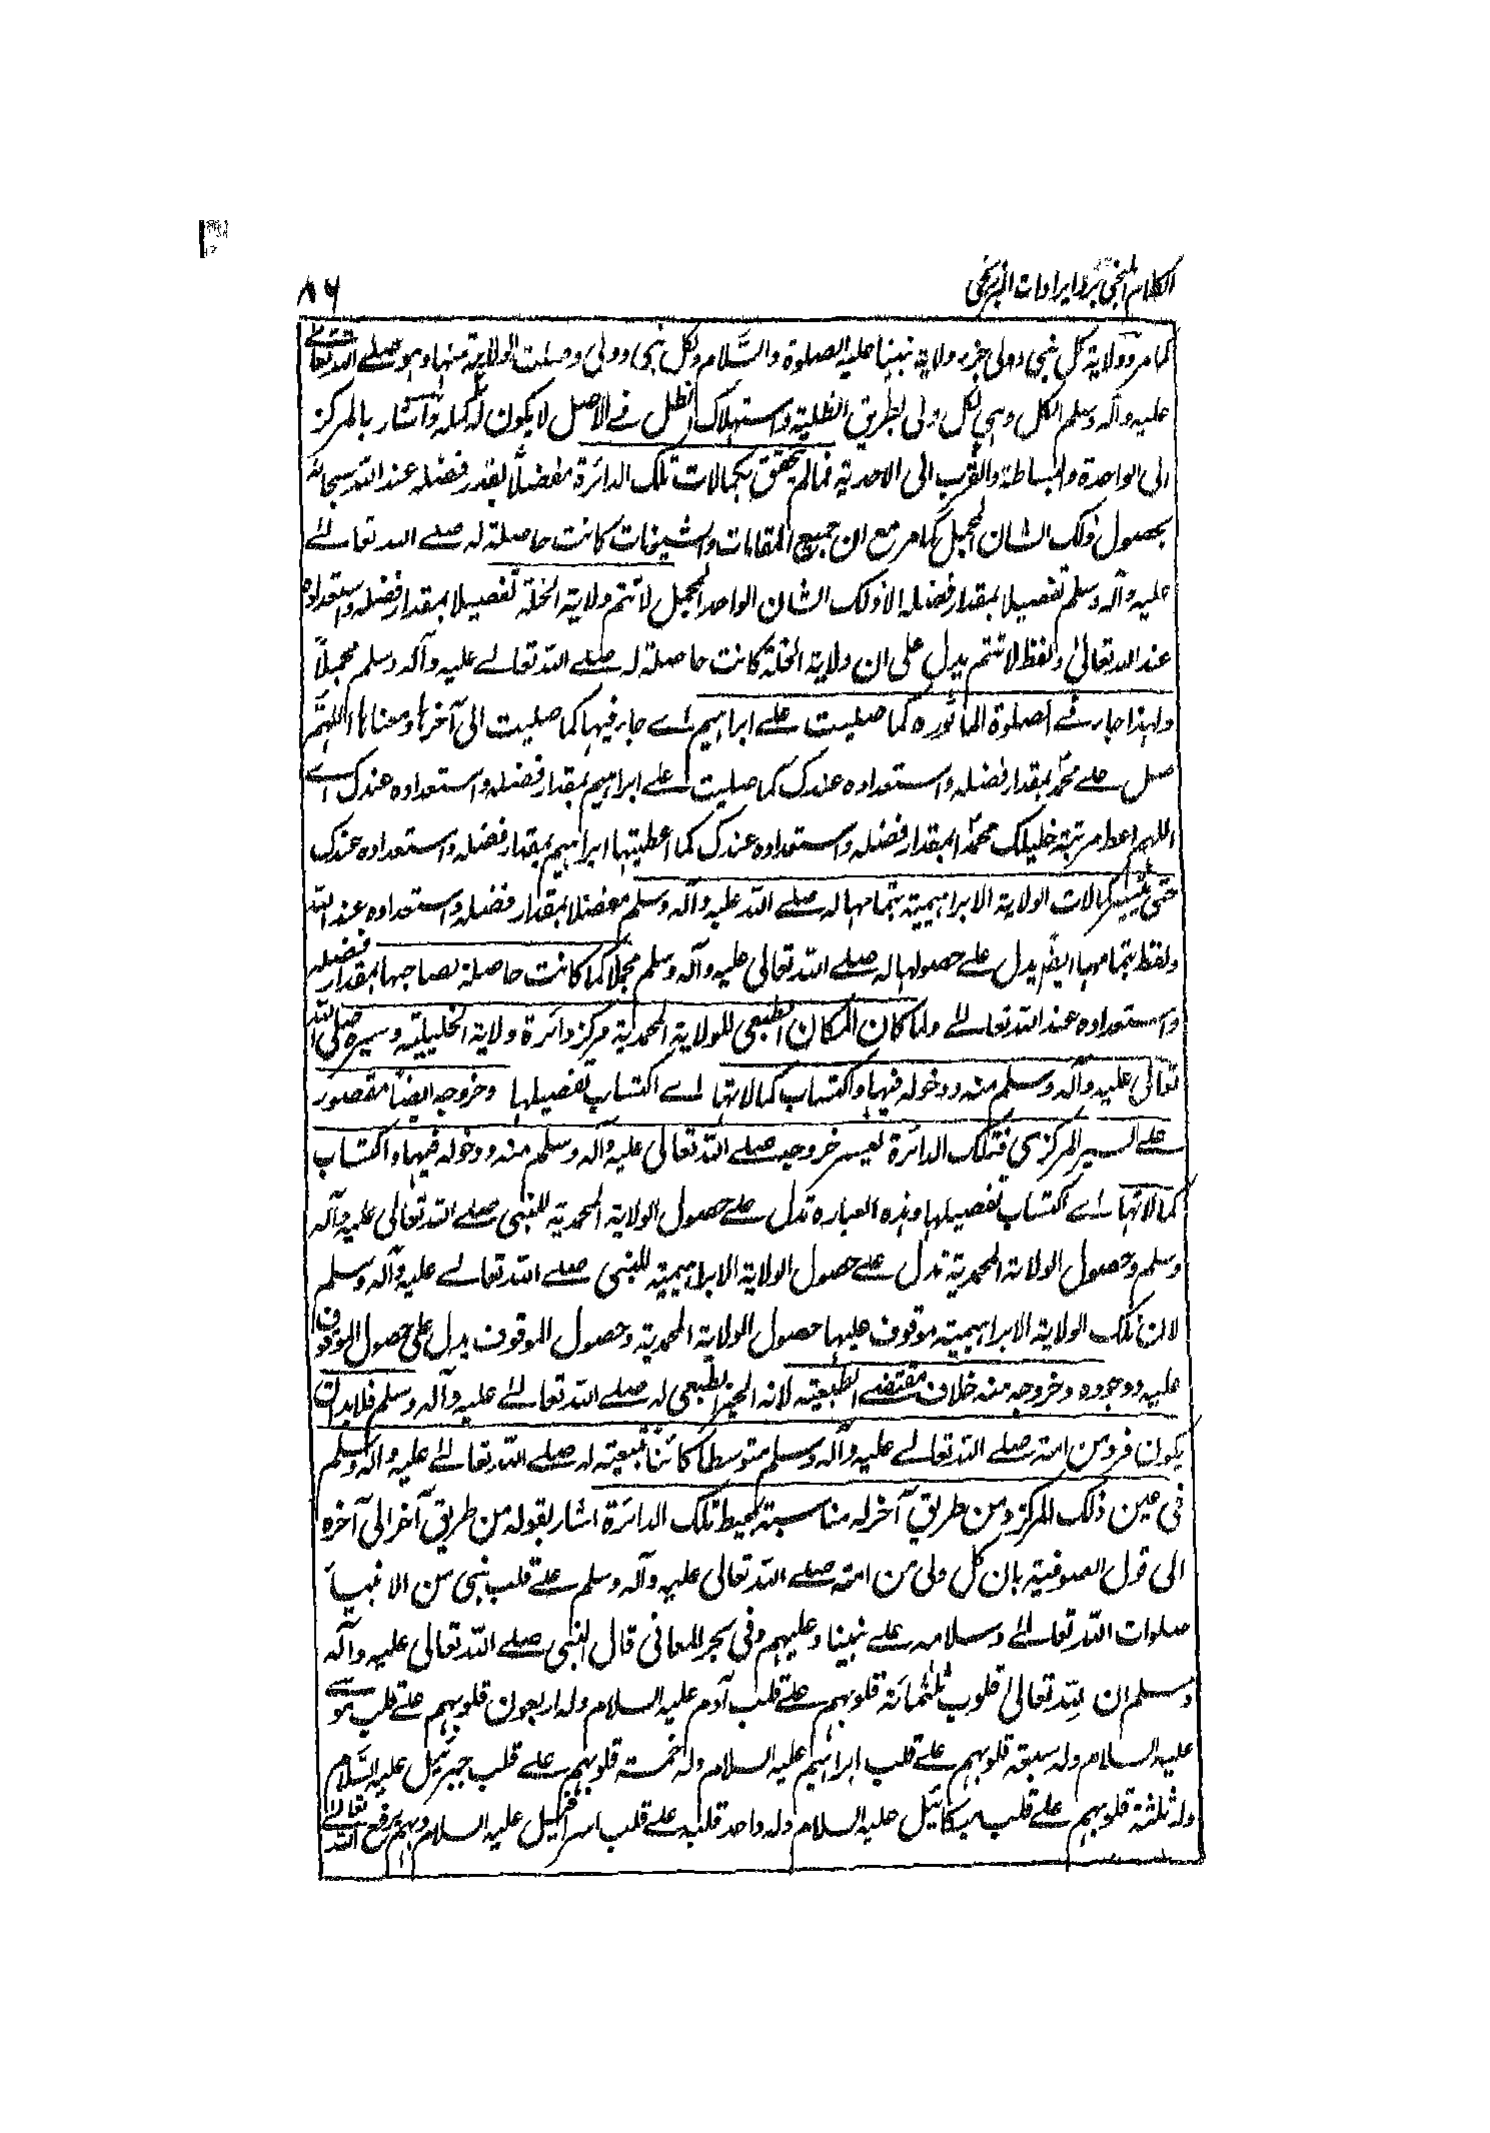 الكلام المنجى برد ايرادات البرزنجى
٨٦
كما مر وولاية كل نبى وولى جزء ولاية نبينا عليه الصلوة والسَّلام ولكل نبى وولى وصلت الولاية منها وهو صلے اللہ تعالى
عليه وآله وسلم الكل وهى لكل ولى بطريق الظلية واستهلاك الظل فى الاصل لا يكون له كماله وأشار بالمركز
الى الواحدة والبساطة والقرب الى الاحدية فما لم يتحقق بكمالات تلك الدائرة مفضلاً بقدر فضله عند الله سبحانه
بحصول ذلك الشان المجمل كما مر مع ان جميع المقامات والشيونات كانت حاصلة له صلے اللہ تعالے
عليه وآله وسلم تفصيلا بمقدار فضله الا ذلك الشان الواحد المجمل لا تتم ولاية الخلة تفصيلا بمقدار فضله واستعداده
عند الله تعالى ولفظ لا تتم يدل على ان ولاية الخلة كانت حاصلة له صلے اللہ تعالے عليه وآله وسلم مجملاً
ولهذا جاء فے الصلوة الماثوره كما صليت علے ابراهيم اے جاء فيها كما صليت الى آخرها ومعناها اللهمَّ
صل علے محمّد بمقدار فضله واستعداده عندك كما صليت علے ابراهيم بمقدار فضله واستعداده عندك اے
اللهم اعط مرتبة خليلك محمّدا بمقدار فضله واستعداده عندك كما اعطيتها ابراهيم بمقدار فضله واستعداده عندك
حتى يتيسر كمالات الولاية الابراهيمية بتمامها له صلے اللہ عليه وآله وسلم مفضلا بمقدار فضله واستعداده عند اللہ
ولفظ بتمامها ايضًا يدل علے حصولها له صلے اللہ تعالى عليه وآله وسلم مجملًا كما كانت حاصلة لصاحبها بمقدار فضله
واستعداده عند اللہ تعالے ولما كان المكان الطبعى للولاية المحمدية مركز دائرة ولاية الخليلية وسيره صلى اللہ
تعالى عليه وآله وسلم منه ودخوله فيها واكتساب كمالاتها اے اكتساب تفصيلها وخروجه ايضًا مقصور
علے السير المركزى فتلك الدائرة تعيسر خروجه صلے اللہ تعالى عليه وآله وسلم منه ودخوله فيها واكتساب
كمالاتها اے اكتساب تفصيلها وهذه العبارة تدل علے حصول الولاية المحمدية للنبى صلے اللہ تعالى عليه وآله
وسلم وحصول الولاية المحمدية تدل علے حصول الولاية الابراهيمية للنبى صلے اللہ تعالے عليه وآله وسلم
لان تلك الولاية الابراهيمية موقوف عليها حصول الولاية المحمدية وحصول الموقوف يدل على حصول الموقوف
عليه ووجوده وخروجه منه خلاف مقتضے الطبعية لانه الحيز الطبعى له صلے اللہ تعالے عليه وآله وسلم فلا بد ان
يكون فرد من امته صلے اللہ تعالے عليه وآله وسلم متوسطا كائناً بتبعيته له صلے اللہ تعالے عليه وآله وسلم
فى عين ذلك المركز ومن طريق آخر له مناسبة لمحيط تلك الدائرة اشار بقوله من طريق آخر الى آخره
الى قول الصوفية بان كل ولى من امته صلے اللہ تعالى عليه وآله وسلم علے قلب نبى من الانبياء
صلوات اللہ تعالے وسلامه علے نبينا وعليهم وفى بحر المعانى قال النبى صلے اللہ تعالى عليه وآله
وسلم ان لِلّٰه تعالى قلوب ثلثمائة قلوبهم علے قلب آدم عليه السلام وله اربعون قلوبهم علے قلب موسے
عليه السلام وله سبعة قلوبهم علے قلب ابراهيم عليه السلام وله خمسة قلوبهم علے قلب جبرئيل عليه السَّلام
وله ثلثة قلوبهم علے قلب ميكائيل عليه السلام وله واحد قلبه علے قلب اسرافيل عليه السلام وبهم يرفع اللہ تعالے